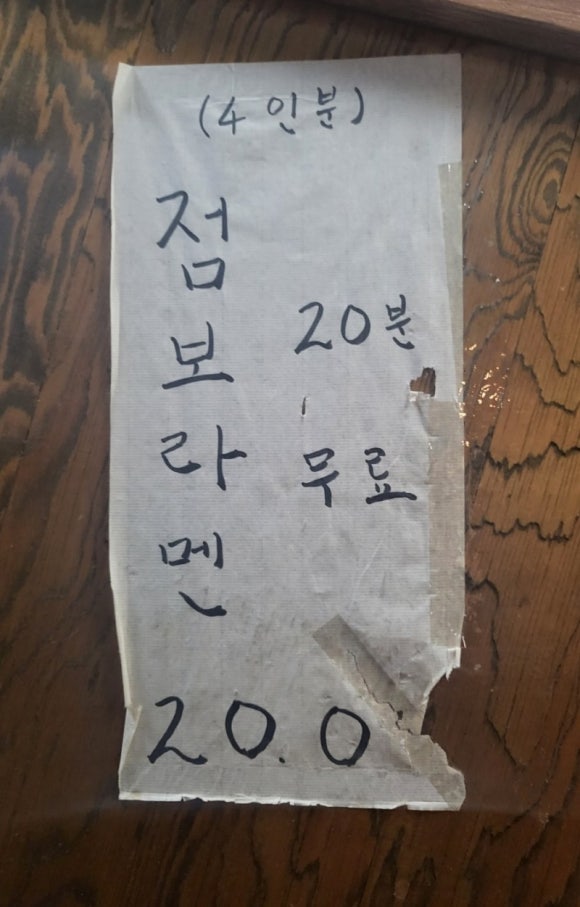 (4인분)
점보라멘
20분
무료
20.0